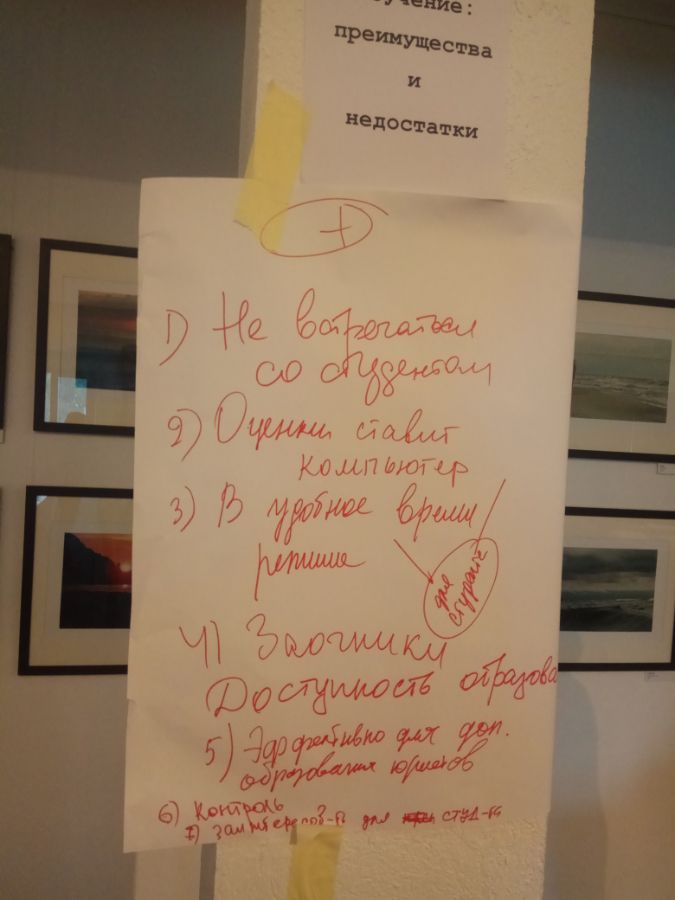 учение:
преимущества
и
недостатки
+
1) Не встречаться
со студентом
2) Оценки ставит
компьютер
3) В удобное время
для
студента
4) Заочники
Доступность образова
5) Эффективно для доп.
образования юристов
6) Контроль
7) для студ-та